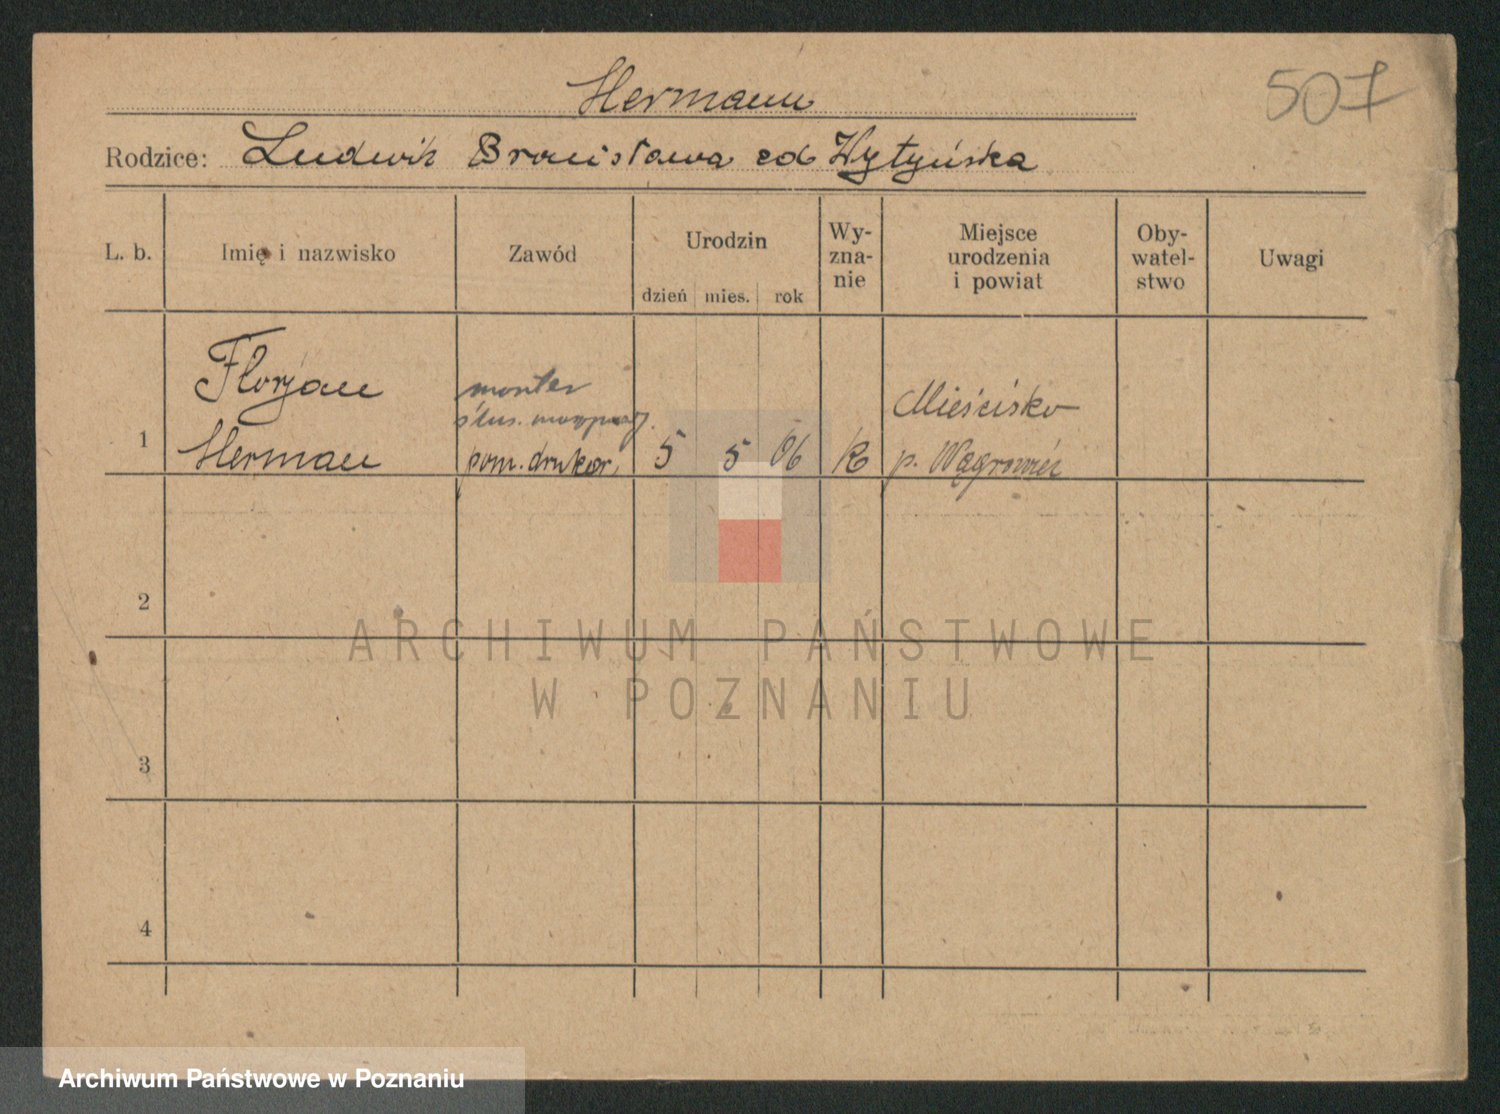 Hermann
507
Rodzice: Ludwik Bronisława zd Wytyńska
L. b. Imię i nazwisko Zawód Urodzin dzień mies. rok Wy-
zna-
nie Miejsce
urodzenia
i powiat Oby-
watel-
stwo Uwagi
Florjan
Herman
monter
ślus.
pom. drukar.
1 5 5 06 k
Mieścisko
p. Wągrowiec
2
3
4
ARCHIWUM PAŃSTWOWE
W POZNANIU
Archiwum Państwowe w Poznaniu